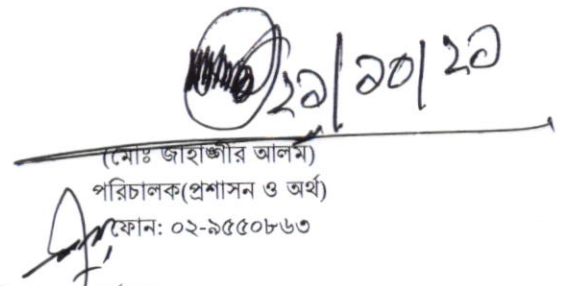 ২১/১০/২১
(মোঃ জাহাঙ্গীর আলম)
পরিচালক(প্রশাসন ও অর্থ)
ফোন: ০২-৯৫৫০৮৬৩